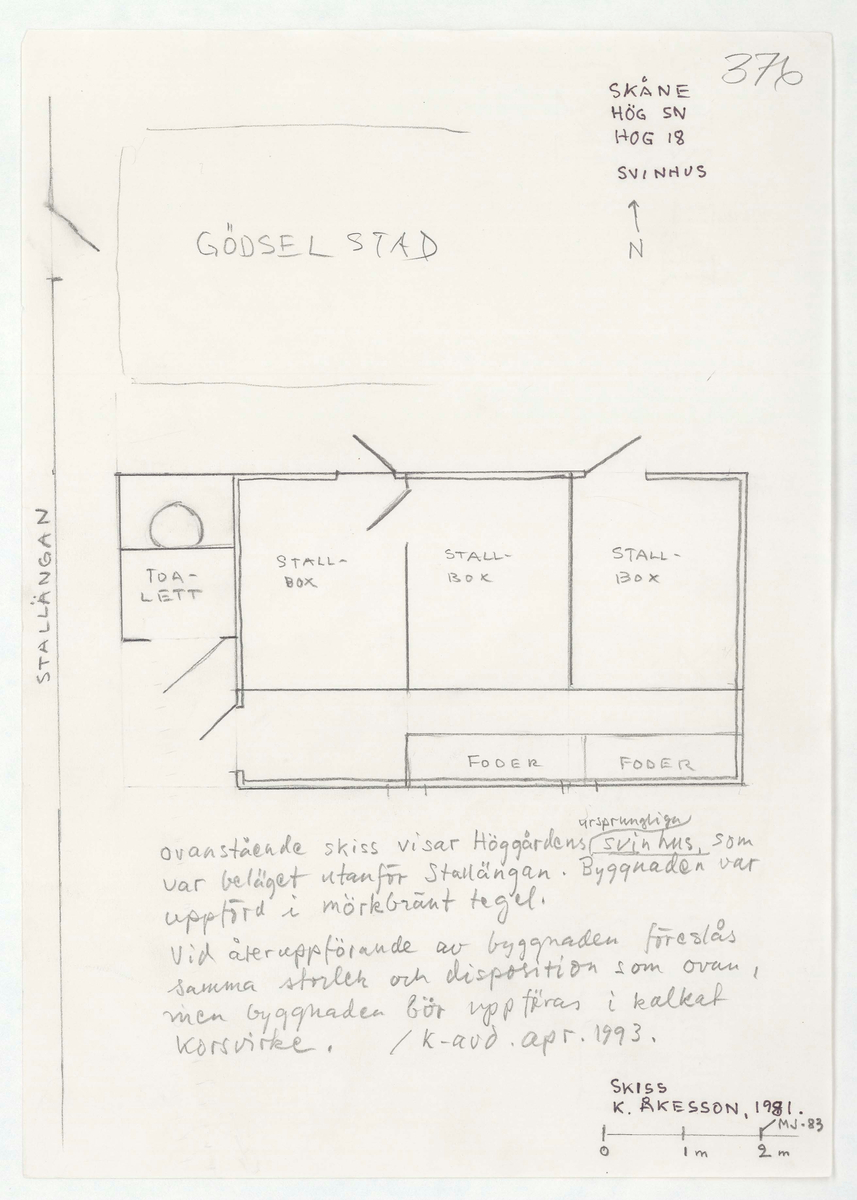 376
SKÅNE
HÖG SN
HÖG 18
SVINHUS
N
GÖDSELSTAD
STALLÄNGAN
TOA-
LETT
STALL-
BOX
STALL-
BOX
STALL-
BOX
FODER
FODER
ursprungliga
ovanstående skiss visar Höggårdens svinhus, som
var beläget utanför Stallängan. Byggnaden var
uppförd i mörkbränt tegel.
Vid återuppförande av byggnaden föreslås
samma storlek och disposition som ovan,
men byggnaden bör uppföras i kalkat
Korsvirke. / K-avd. apr. 1993.
SKISS
K. ÅKESSON, 1981.
MJ-83
0 1m 2m